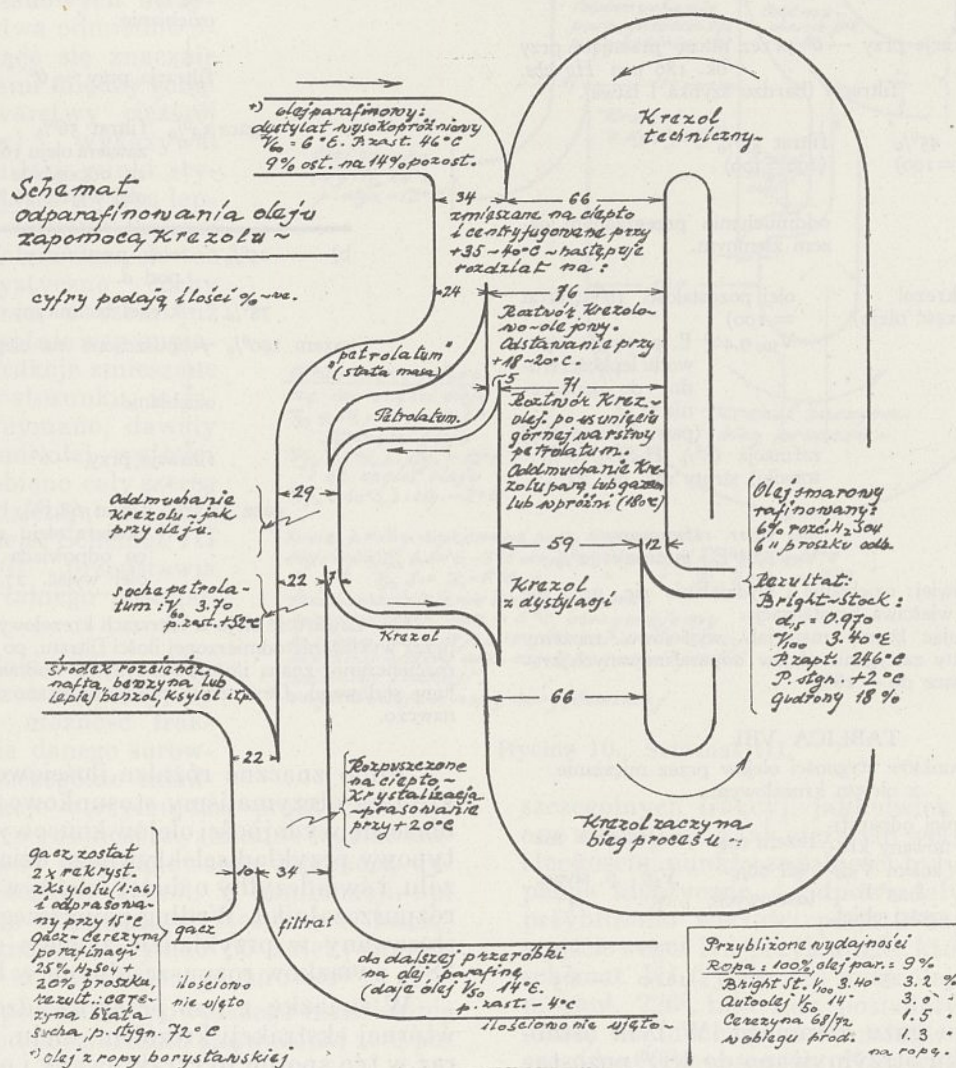 Schemat
odparafinowania oleju
zapomocą Krezolu ~
cyfry podają ilości % ~ we.
*) olej parafinowy:
dystylat wysokopróżniowy
V₆₀ = 6°E. P.zast. 46°C
9% ost. na 14% pozost.
Krezol
techniczny~
34
66
zmieszane na ciepło
i centryfugowane przy
+35 ~ 40°C ~ następuje
rozdział na:
24
76
Roztwór Krezolo-
wo-olejowy.
Odstawanie przy
+18 ~ 20°C.
"petrolatum"
(stała masa)
5
71
Petrolatum.
Roztwór Krez.~
olej. po usunięciu
górnej warstwy
petrolatum.
Oddmuchanie Kre-
zolu parą lub gazem
lub w próżni (180°C)
29
Oddmuchanie
Krezolu ~ jak
przy oleju.
59
12
Olej smarowy
rafinowany:
6% rozć. H₂SO₄
6 " proszku odb.
Rezultat:
Bright~Stock:
d₁₅ = 0.970
V₁₀₀ 3.40°E
P.zapł. 246°C
P. stgn. +2°C
Gudrony 18%
22
7
suche petrola-
tum: V₆₀ 3.70
p.zast. +52°C
Krezol
Krezol
z dystylacji
66
środek rozcieńcz.
nafta, benzyna lub
lepiej benzol, ksylol itp.
22
Rozpuszczone
na ciepło ~
Krystalizacja
~ prasowanie
przy +20°C
Krezol zaczyna
bieg procesu ~:
gacz został
2 x rekryst.
z ksylolu (1:06)
i odprasowa-
ny przy 15°C
gacz-cerezyna
po rafinacji
25% H₂SO₄ +
20% proszku,
rezult.: cere-
zyna biała
sucha, p. stygn. 72°C
10
34
gacz
filtrat
ilościowo
nie ujęto
do dalszej przeróbki
na olej parafinę
(daje olej V₅₀ 14°E.
p. zast. ~ 4°C
ilościowo nie ujęto~
*) olej z ropy borysławskiej
Przybliżone wydajności
Ropa: 100%, olej par.: 9%
Bright St. V₁₀₀ 3.40° 3.2 %
Autoolej V₅₀ 14° 3.0 "
Cerezyna 68/72 1.5 "
w obiegu prod. 1.3
na ropę.